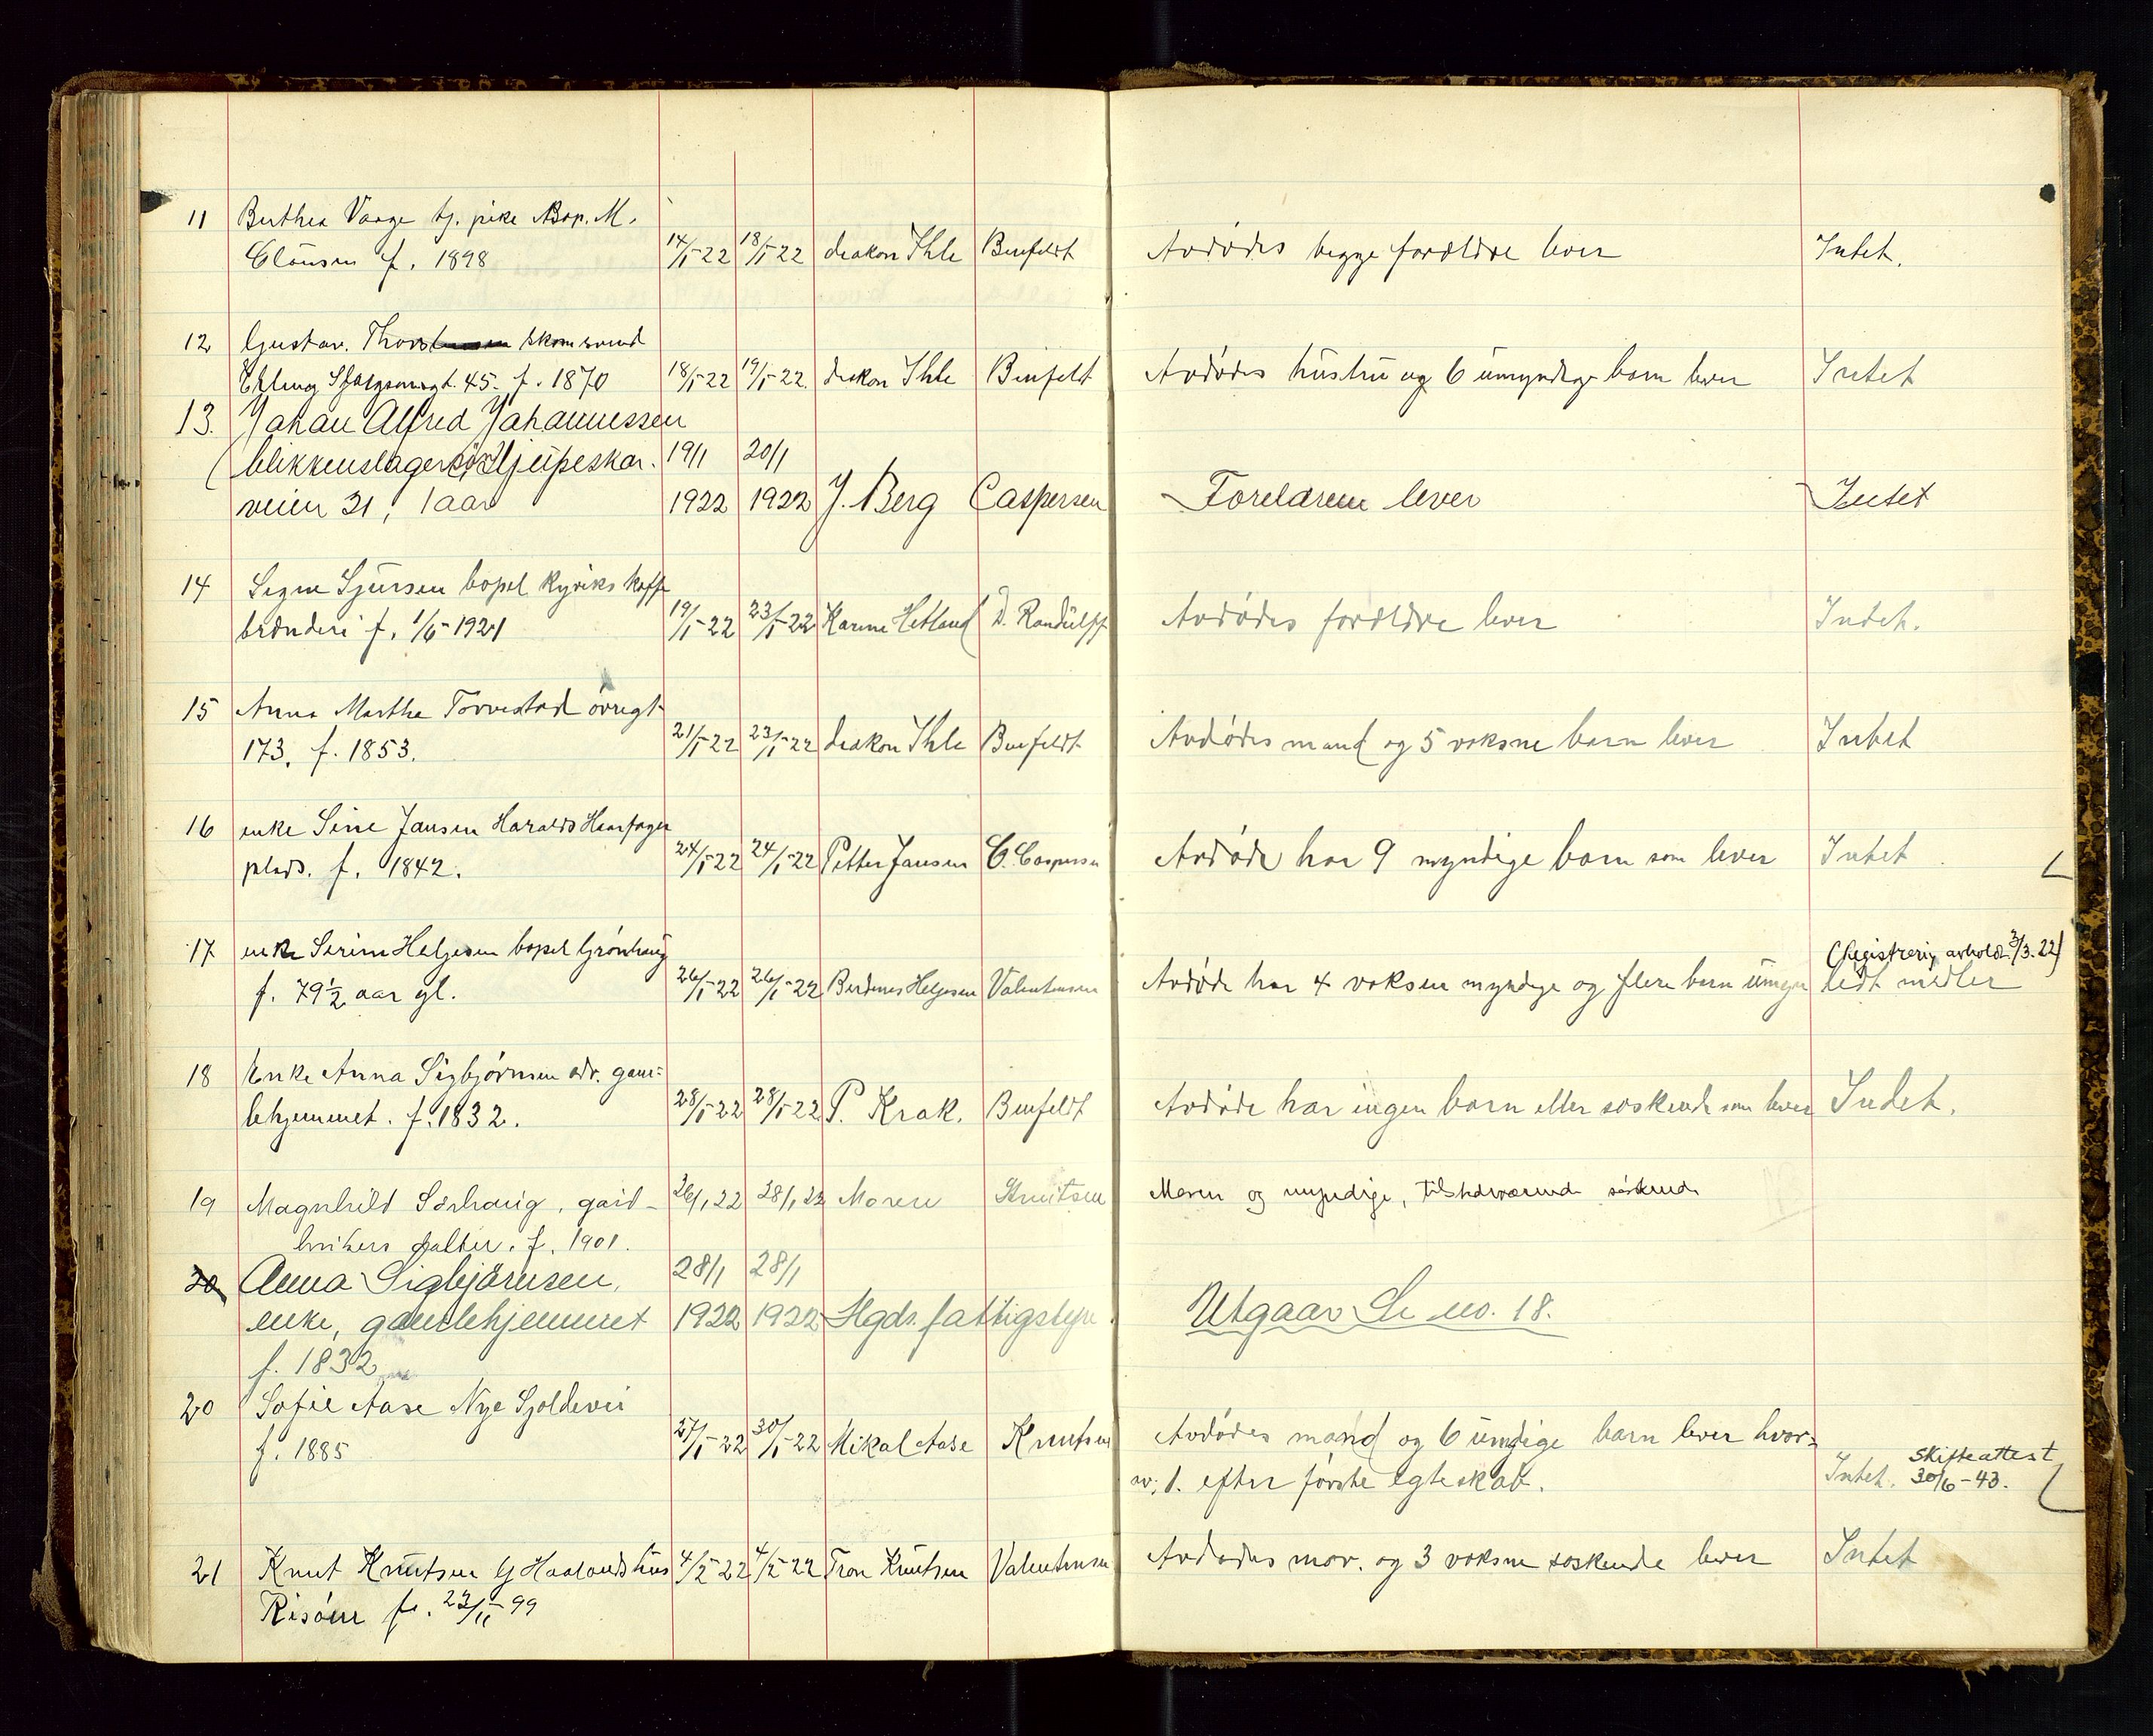 11 Berthea Vaage tj. pike Bop. M.
Clausen f. 1898 14/1-22 18/1-22 diakon Ihle Binfeldt Avdødes begge forældre lever Intet.
12 Gustav. skom svend
45. f. 1870 18/1-22 19/1-22. diakon Ihle Binfeldt Avdødes hustru og 6 umyndige barn lever Intet
13. Johan Alfred Johannessen
(blikkenslager Hjüpeskar. 19/1 20/1
veien 31, 1 aar 1922 1922 J. Berg Caspersen Foreldrene lever Intet
14 Signe Sjursen bopel Kyviks kaffe
brænderi f. 1/6-1921 19/1-22 23/1-22 Karine Hetland D. Randulff Avdødes forældre lever Intet.
15 Anna Martha Torvestad övregt
173. f. 1853. 21/1-22 23/1-22 diakon Ihle Binfeldt Avdødes mand og 5 voksne barn lever Intet
16 enke Sine Jansen Haralds Haarfager
plads. f. 1842. 24/1-22 24/1-22 Petter Jansen C. Caspersen Avdøde har 9 myndige barn som lever Intet
17 enke Serine Helgesen bopel Grönhaug (Registrering avholdt 3/3.22)
f. 79½ aar gl. 26/1-22 26/1-22 Berdines Helgesen Valentinsen Avdøde har 4 voksen myndige og flere barn umyn lidt midler
18 Enke Anna Sigbjörnsen adr. gam-
lehjemmet. f. 1832. 28/1-22 28/1-22 P. Krak. Binfeldt Avdøde har ingen barn eller söskende som lever Intet.
19 Magnhild Sörhaug, gård- 26/1 22 28/1 22 Moren Knutsen Moren og myndige, tilstedværende söskende
brukers datter. f. 1901.
20 Anna Sigbjörnsen, 28/1 28/1
enke, gamlehjemmet 1922 1922 Hgds. fattigstyre Utgaar Se no. 18.
f. 1832
20 Sofie Aase Nye Sjoldevei
f. 1885 27/1-22 30/1-22 Mikal Aase Knutsen Avdødes mand og 6 umdige barn lever hvor-
av. 1. efter første egteskab. Intet. Skifteattest 30/6-43.
21 Knut Knutsen Haalandshus 4/2 22 4/2-22 Tron Knutsen Valentinsen Avdødes mor. og 3 voksne søskende lever Intet
Risöen f. 23/11-99